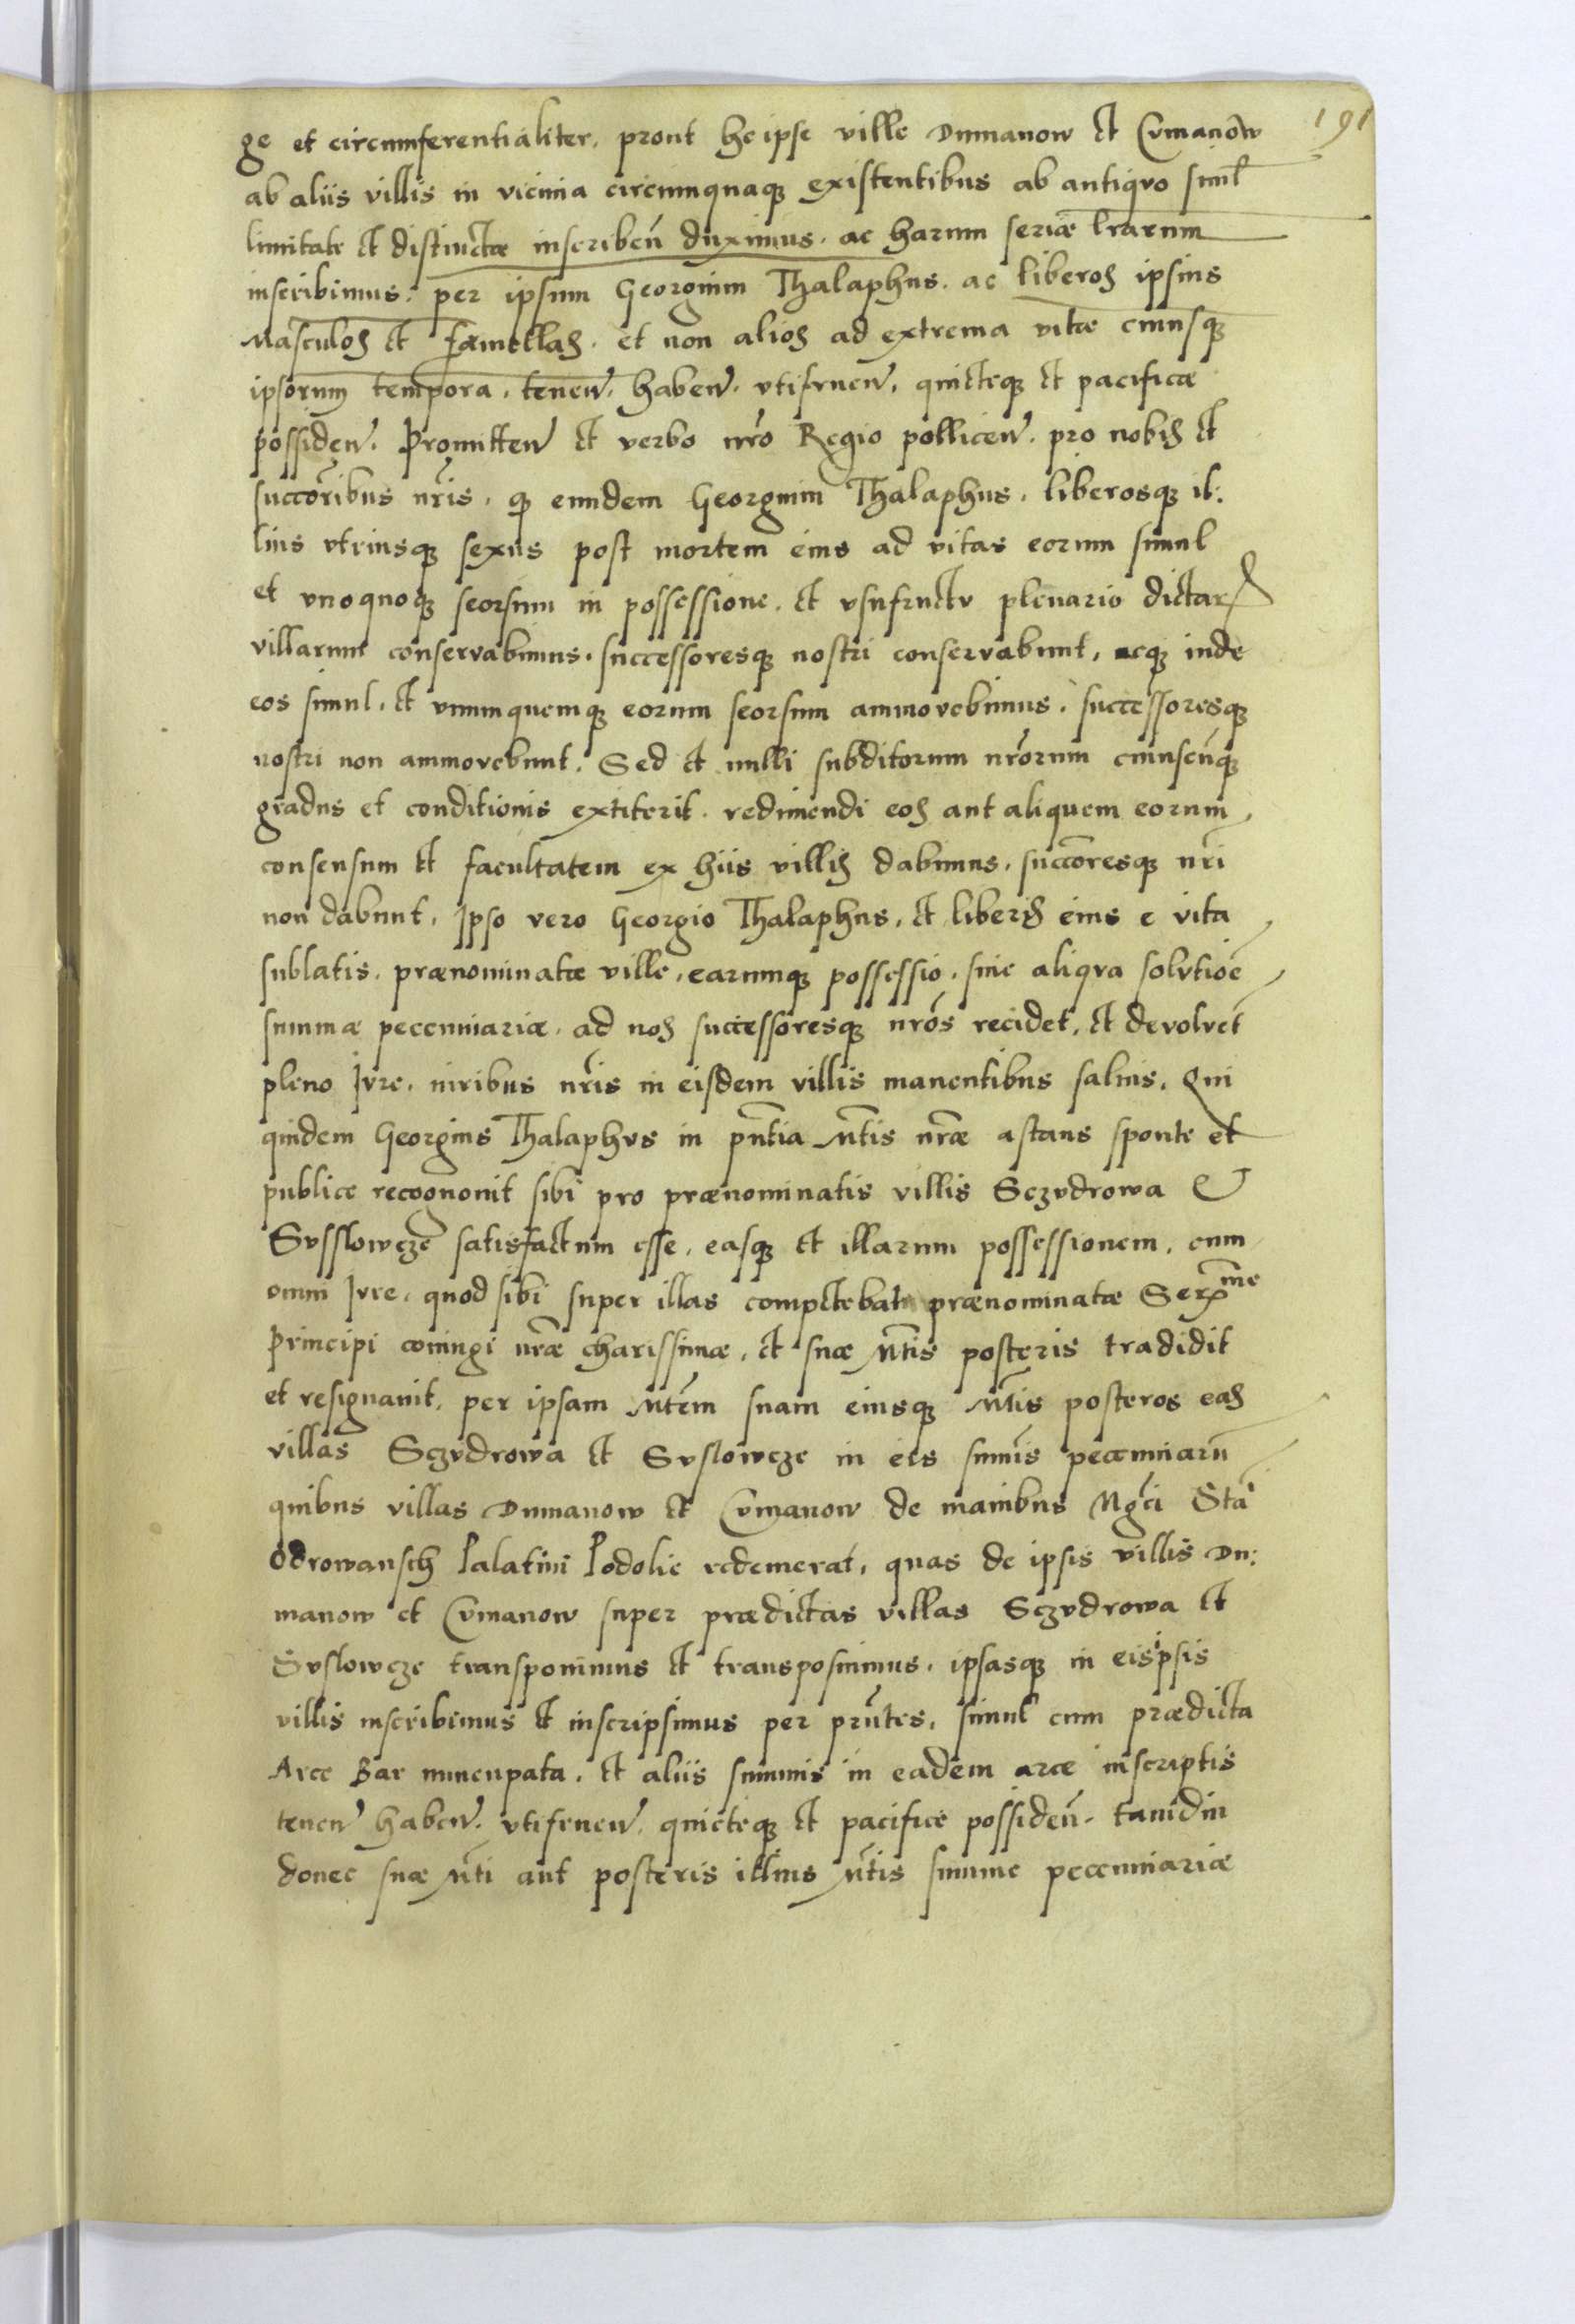 191
ge et circumferentialiter, prout he ipse ville Dumanow et Cvmanow
ab aliis villis in vicinia circumquaqꝫ existentibus ab antiqvo simŀ
limitate et distinctæ inscribeñ duximus. ac harum seriæ lr̃arum
inscribimus. per ipsum Georgium Thalaphus. ac liberos ipsius
Masculos et fæmellas. et non alios ad extrema vitæ cuiusqꝫ
ipsorum tempora, teneñ. habeñ. vtifrueñ, quieteqꝫ et pacificæ
possideñ. Promitteñ et verbo nr̃o Regio polliceñ. pro nobis et
succõribus nr̃is. ꝙ eundem Georgium Thalaphus. liberosqꝫ il:
lius vtriusqꝫ sexus post mortem eius ad vitas eorum simul
et vnoquoqꝫ seorsum in possessione. et vsufructv plenario dictarꝝ
villarum conservabimus. successoresqꝫ nostri conservabunt, neqꝫ inde
eos simul. et vnumquemqꝫ eorum seorsum ammovebimus. successoresqꝫ
nostri non ammovebunt. Sed et nulli subditorum nr̃orum cuiuscũqꝫ
gradus et conditionis extiterit. redimendi eos aut aliquem eorum
consensum et facultatem ex hiis villis dabimus. succõresqꝫ nr̃i
non dabunt. Ipso vero Georgio Thalaphus. et liberis eius e vita
sublatis. prænominatæ ville, earumqꝫ possessio. sine aliqva solvtiõe
summæ pecuniariæ. ad nos successoresqꝫ nr̃os recidet. et devolvet̃
pleno Jvre. iuribus nr̃is in eisdem villis manentibus saluis. Qui
quidem Georgius Thalaphvs in pñtia Mt̃is nr̃æ astans sponte et
publice recognouit sibi pro prænominatis villis Sczvdrowa &
Svsslowcze satisfactum esse. easqꝫ et illarum possessionem. cum
omni Jvre. quod sibi super illas competebat prænominatæ Serx̃me
Principi coniugi nr̃æ charissimæ. et suæ Mt̃is posteris tradidit
et resignauit, per ipsam Mt̃em suam eiusqꝫ Mt̃is posteros eas
villas Sczvdrowa et Svslowcze in eis sum̃is pecuniarũ
quibus villas Dumanow et Cvmanow de manibus Mgci Sta
Odrowansch Palatini Podolie redemerat, quas de ipsis villis Du:
manow et Cvmanow super prædictas villas Sczvdrowa et
Svslowcze transponimus et transposuimus. ipsasqꝫ in eisipsis
villis inscribimus et inscripsimus per prñtes, simul cum prædicta
Arce Bar nuncupata. et aliis summis in eadem arcæ inscriptis
teneñ habeñ. vtifrueñ. quieteqꝫ et pacifice possideñ. tamdiu
donec suæ Mt̃i aut posteris illius Mt̃is summe pecuniariæ